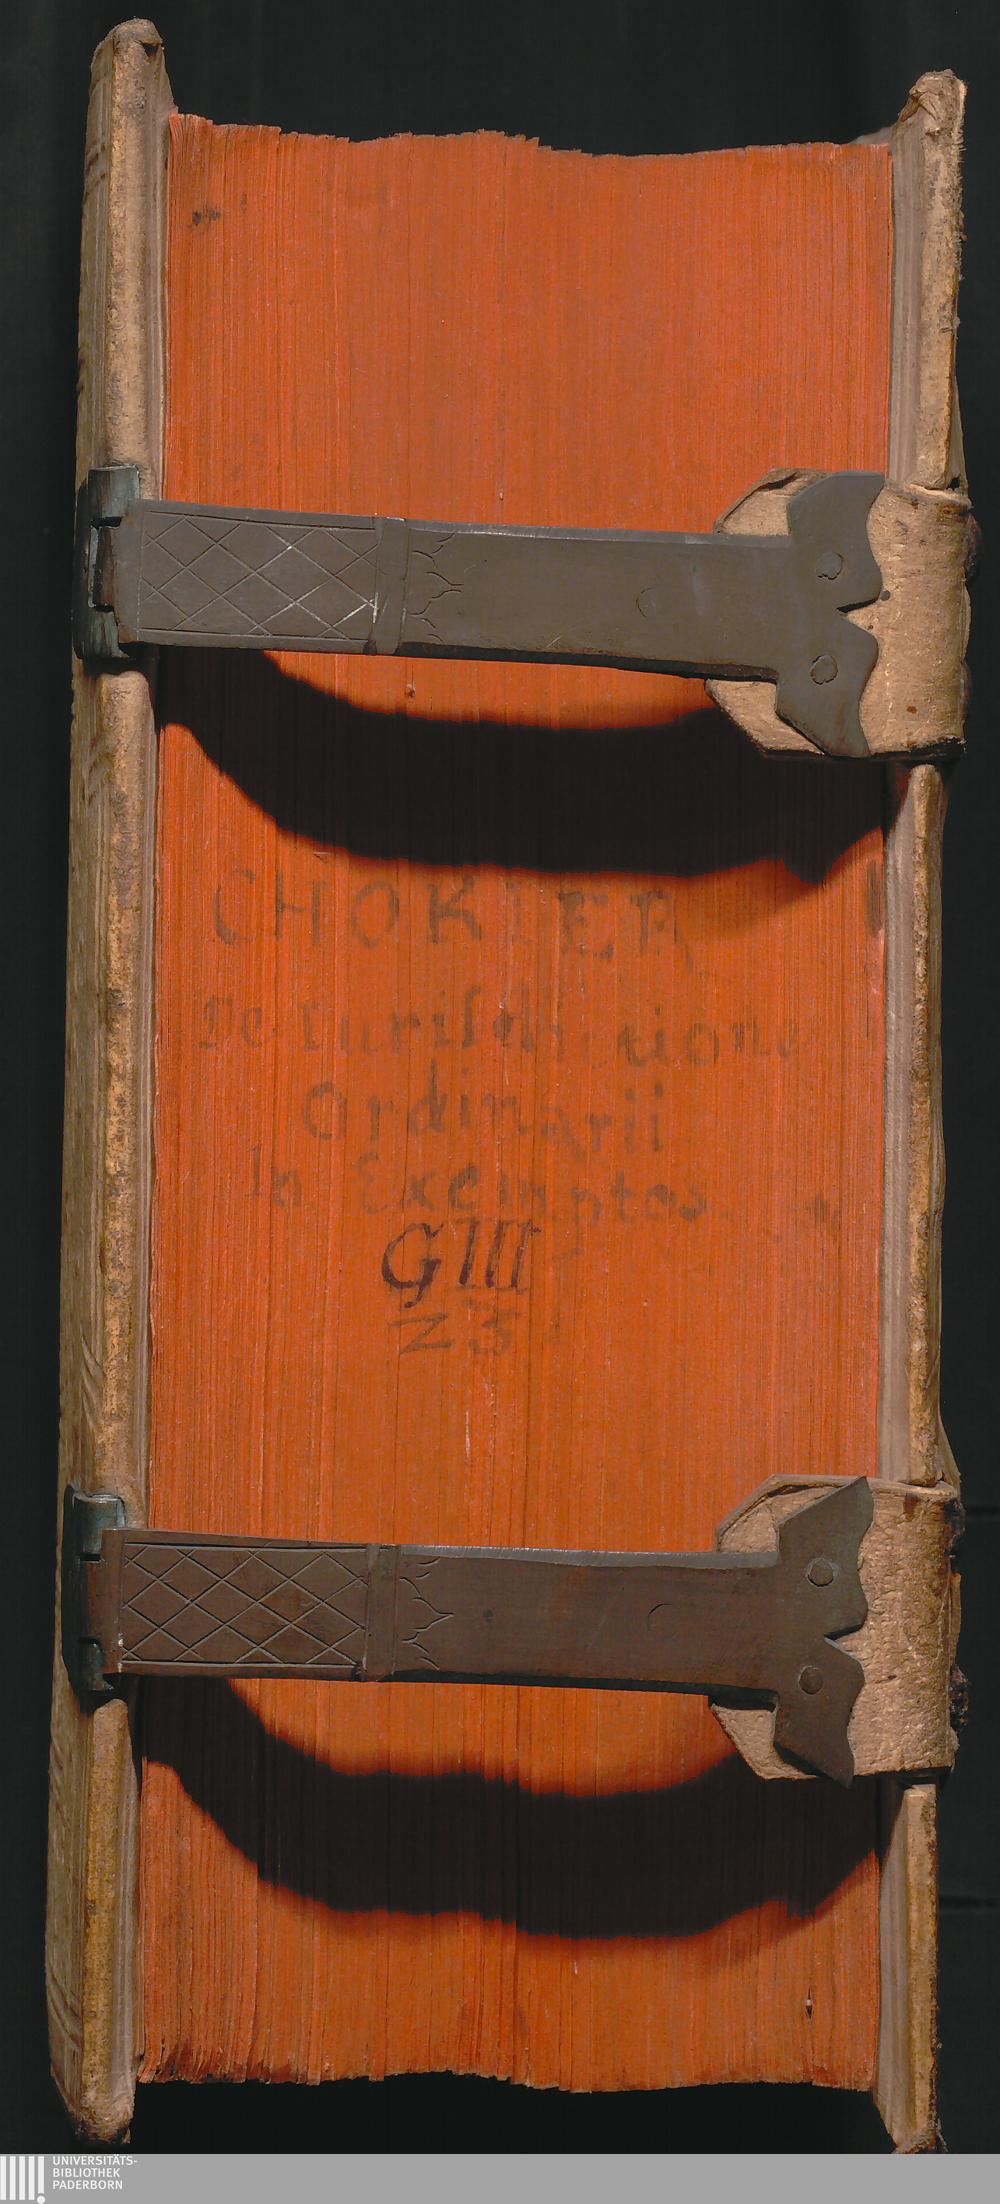 CHOKIER
De Iuriſdictione
Ordinarii
In Exemptos
GIII
23
UNIVERSITÄTS-
BIBLIOTHEK
PADERBORN